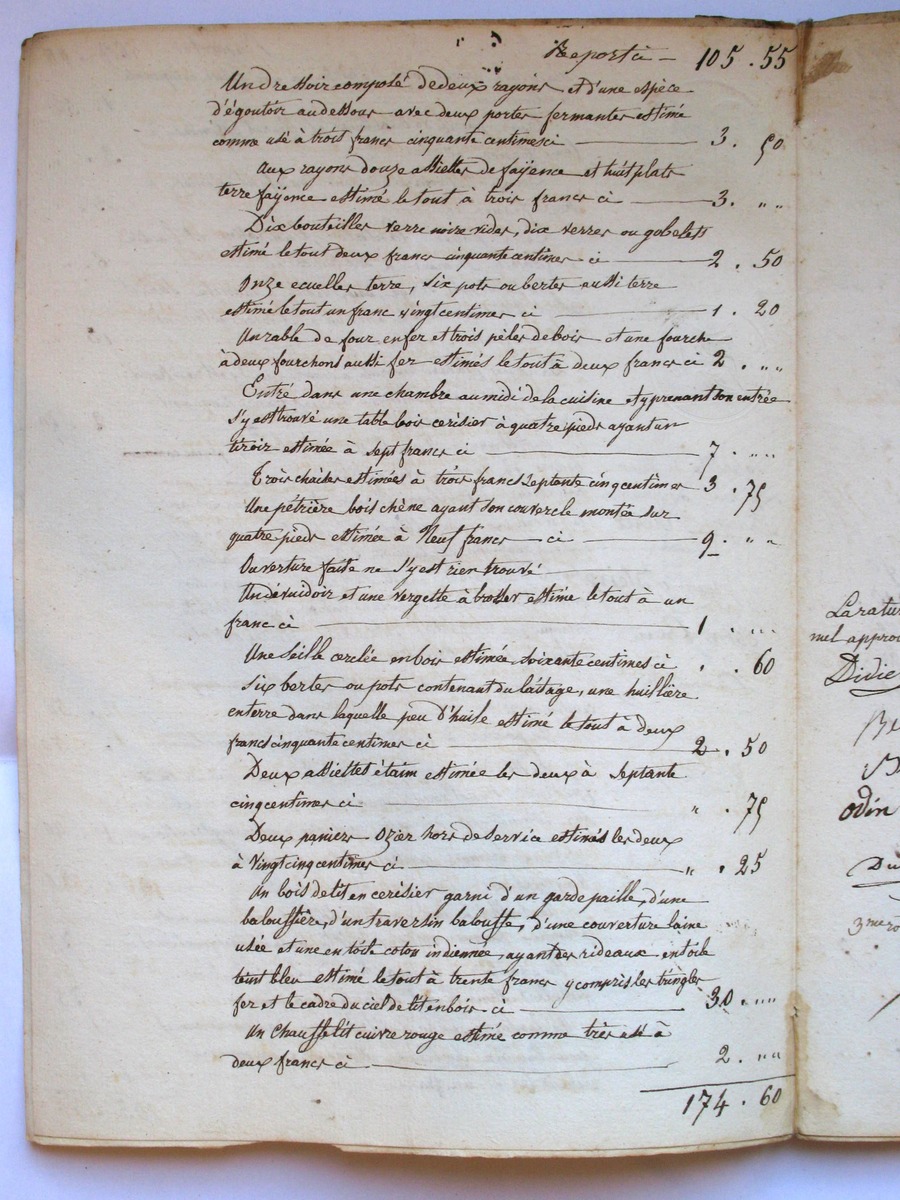 Reporté — 105 . 55
Un dressoir composé de deux rayons et d'une espèce
d'égoutoir au dessous avec deux portes fermantes estimé
comme usé à trois francs cinquante centimes ci — 3 . 50
Aux rayons douze assiettes de fayence et huit plats
terre fayence estimé le tout à trois francs ci — 3 . " "
Dix bouteilles verre noire vides, dix verres ou gobelets
estimé le tout deux francs cinquante centimes ci — 2 . 50
Onze ecuelles terre, six pots ou bertes aussi terre
estimé le tout un franc vingt centimes ci — 1 . 20
Un rable de four en fer et trois pèles de bois et une fourche
à deux fourchons aussi fer estimés le tout à deux francs ci 2 . " "
Entré dans une chambre au midi de la cuisine et y prenant son entrée
s'y est trouvé une table bois cerisier à quatre pieds ayant un
tiroir estimée à sept francs ci — 7 . " "
Trois chaises estimées à trois francs septante cinq centimes 3 . 75
Une pétrière bois chêne ayant son couvercle montée sur
quatre pieds estimée à Neuf francs — ci — 9 . " "
Ouverture faite ne s'y est rien trouvé
Un dévidoir et une vergette à brosser estimé le tout à un
franc ci — 1 . " "
Une seille cerclée en bois estimée soixante centimes ci . . 60
Six bertes ou pots contenant du laitage, une huillière
en terre dans laquelle peu d'huile estimé le tout à deux
francs cinquante centimes ci — 2 . 50
Deux assiettes étaim estimée les deux à septante
cinq centimes ci — " . 75
Deux paniers ozier hors de service estimés les deux
à vingt cinq centimes ci — " . 25
Un bois de lit en cerisier garni d'un garde paille, d'une
baloussière, d'un traversin balousse, d'une couverture laine
usée et une en toile coton indienne, ayant des rideaux en toile
teint bleu estimé le tout à trente francs y compris les tringles
fer et le cadre du ciel de lit en bois ci — 30 . " "
Un chauffe lit cuivre rouge estimé comme très usé à
deux francs ci — 2 . " "
174 . 60
La ratur
nul approu
Didie
odin
Du